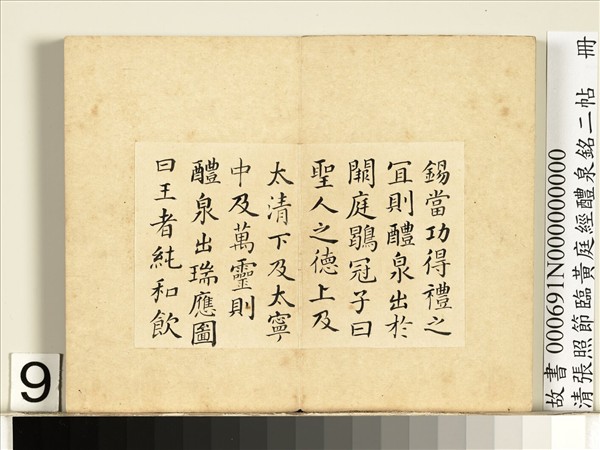 錫當功得禮之
冝則醴泉出於
闕庭鶡冠子曰
聖人之德上及
太清下及太寧
中及萬靈則
醴泉出瑞應圖
曰王者純和飲
故書 000691N000000000
清張照節臨黃庭經醴泉銘二帖 冊
9